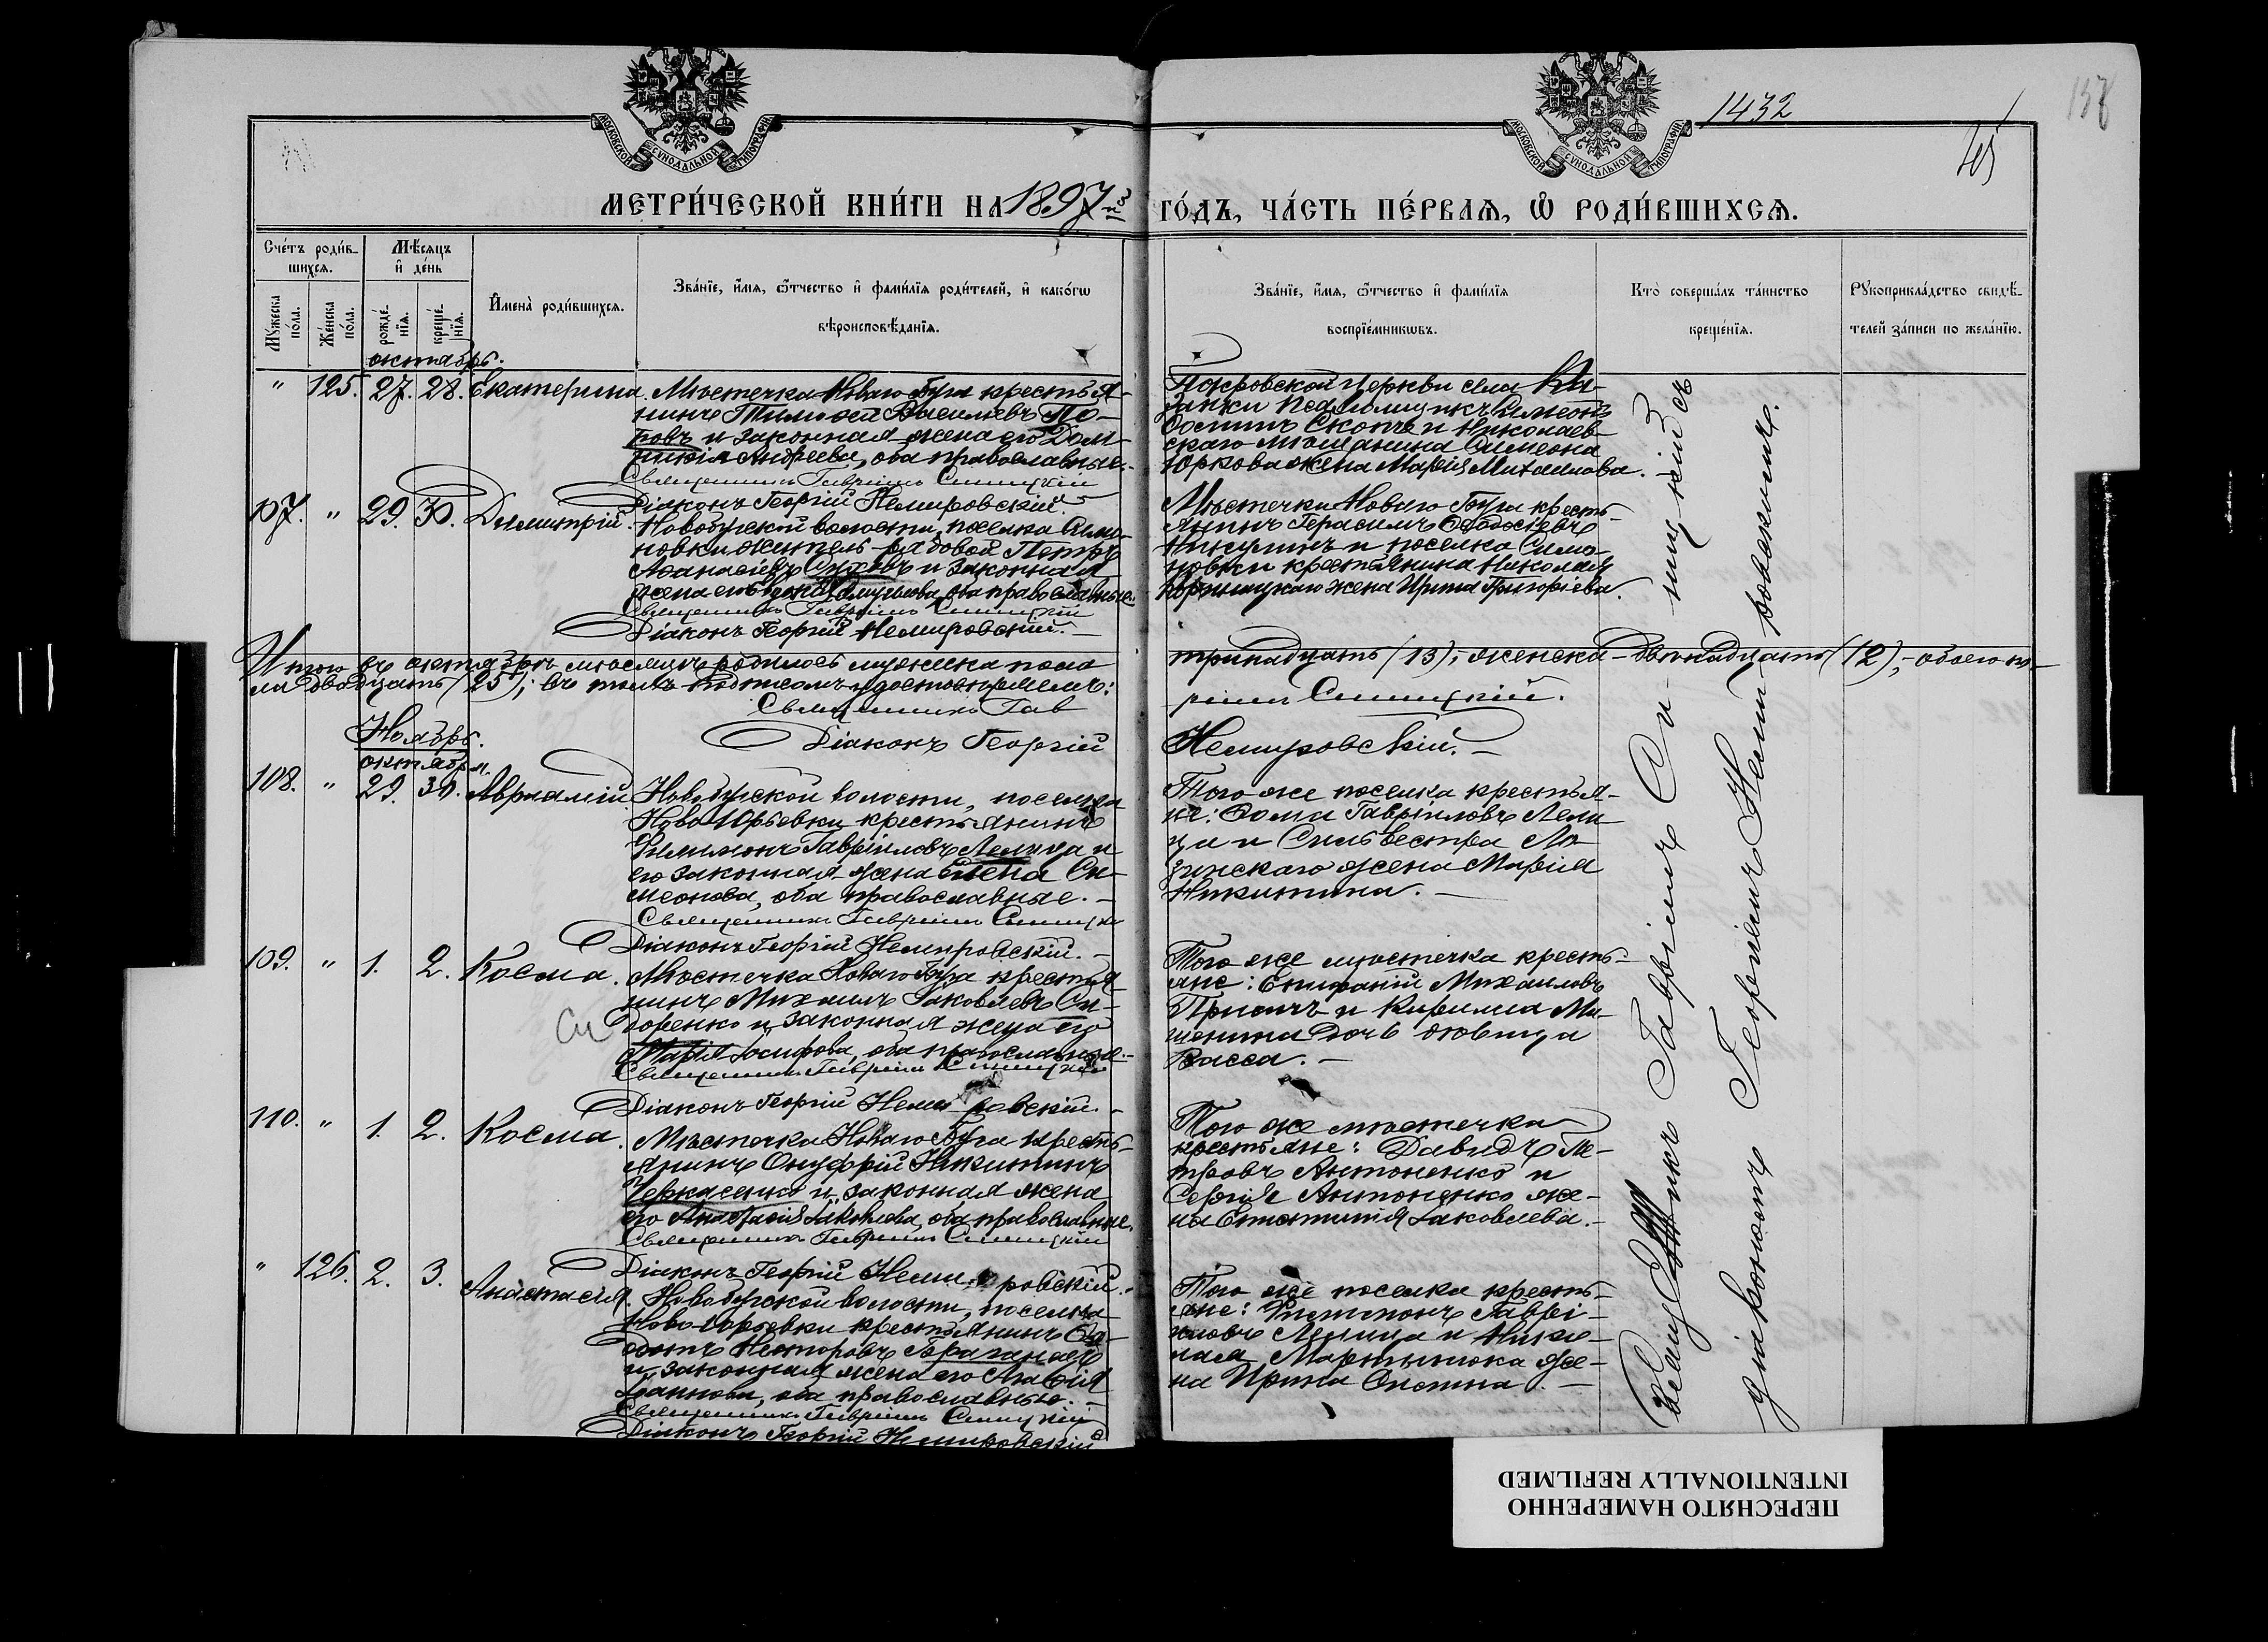 1432
МОСКОВСКОЙ СѴНОДАЛЬНОЙ ТИПОГРАФІИ
МОСКОВСКОЙ СѴНОДАЛЬНОЙ ТИПОГРАФІИ
МЕТРИ́ЧЕСКОЙ КНИ́ГИ НА 1897й ГО́ДЪ, ЧА́СТЬ ПЕ́РВАѦ, Ѡ҆ РОДИ́ВШИХСѦ.
Сче́тъ роди́вшихсѧ.
Мꙋ́жеска по́ла.
Же́нска по́ла.
Мѣ́сѧцъ и҆ де́нь
рожде́нїѧ.
креще́нїѧ.
И҆мена̀ роди́вшихсѧ.
Зва́нїе, и҆́мѧ, ѻ҆́тчество и҆ фами́лїѧ роди́телей, и҆ како́гѡ
вѣроисповѣ́данїѧ.
Зва́нїе, и҆́мѧ, ѻ҆́тчество и҆ фами́лїѧ
воспрїе́мникѡвъ.
Кто̀ соверша́лъ та́инство
креще́нїѧ.
Рꙋкоприкла́дство свидѣ́телей за́писи по жела́нїю.
октябрь.
" 125. 27. 28. Екатерина.
Мѣстечка Новаго Буга крестья-
нинъ Тимофей Васильевъ Пе-
тровъ и законная жена его Дом-
никія Андреева, оба православные.
Священникъ Гавріилъ Синицкій
Діаконъ Георгій Немировскій.
Покровской церкви села Ка-
занки псаломщикъ Симеонъ
и Николаев-
скаго мѣщанина Симеона
Юркова жена Марія Михаилова.
107. " 29. 30. Димитрій.
Новобугской волости, поселка Симо-
новки житель рядовой Петръ
Аѳанасіевъ и законная
жена его оба православные.
Священникъ Гавріилъ Синицкій
Діаконъ Георгій Немировскій.
Мѣстечка Новаго Буга кресть-
янинъ Герасимъ Ѳеодосіевъ
Никулинъ и поселка Симо-
новки крестьянина Николая
жена Ирина Григоріева.
Итого въ октябрѣ мѣсяцѣ родилось мужеска пола тринадцать (13), женска двѣнадцать (12), обоего по-
ла двадцать (25); въ томъ подписомъ удостовѣряемъ:
Священникъ Гавріилъ Синицкій.
Діаконъ Георгій Немировскій.
Ноябрь.
октября.
108. " 29. 30. Авраамій
Новобугской волости, поселка
Ново-Юрьевки крестьянинъ
Филимонъ Гавріиловъ Лелица и
его законная жена Елена Си-
меонова, оба православные.
Священникъ Гавріилъ Синицкій
Діаконъ Георгій Немировскій.
Того же поселка крестья-
не: Ѳома Гавріиловъ Лели-
ца и Сильвестра Ло-
зинскаго жена Марія
Никитина.
109. " 1. 2. Косма.
Мѣстечка Новаго Буга крестья-
нинъ Михаилъ Іаковлевъ Си-
доренко и законная жена его
Марія Іосифова, оба православные.
Священникъ Гавріилъ Синицкій
Діаконъ Георгій Немировскій.
Того же мѣстечка кресть-
яне: Епифаній Михаиловъ
и Кирилла Ми-
шенина дочь дѣвица
Васса.
110. " 1. 2. Косма.
Мѣстечка Новаго Буга кресть-
янинъ Онуфрій Никитинъ
Черкасенко и законная жена
его Анастасія Іаковлева, оба православные.
Священникъ Гавріилъ Синицкій
Діаконъ Георгій Немировскій.
Того же мѣстечка
крестьяне: Давидъ Пе-
тровъ Антоненко и
Сергія Антоненко же-
на Іаковлева.
" 126. 2. 3. Анастасія.
Новобугской волости, поселка
Ново-Юрьевки крестьянинъ Ѳе-
дотъ Несторовъ
и законная жена его Агафія
Іоаннова, оба православные.
Священникъ Гавріилъ Синицкій
Діаконъ Георгій Немировскій
Того же поселка кресть-
яне: Филимонъ Гаврі-
иловъ Лелица и Нико-
лая Мартынюка же-
на Ирина
Священникъ Гавріилъ Синицкій съ
діакономъ Георгіемъ Немировскимъ.
ПЕРЕСНЯТО НАМЕРЕННО
INTENTIONALLY REFILMED